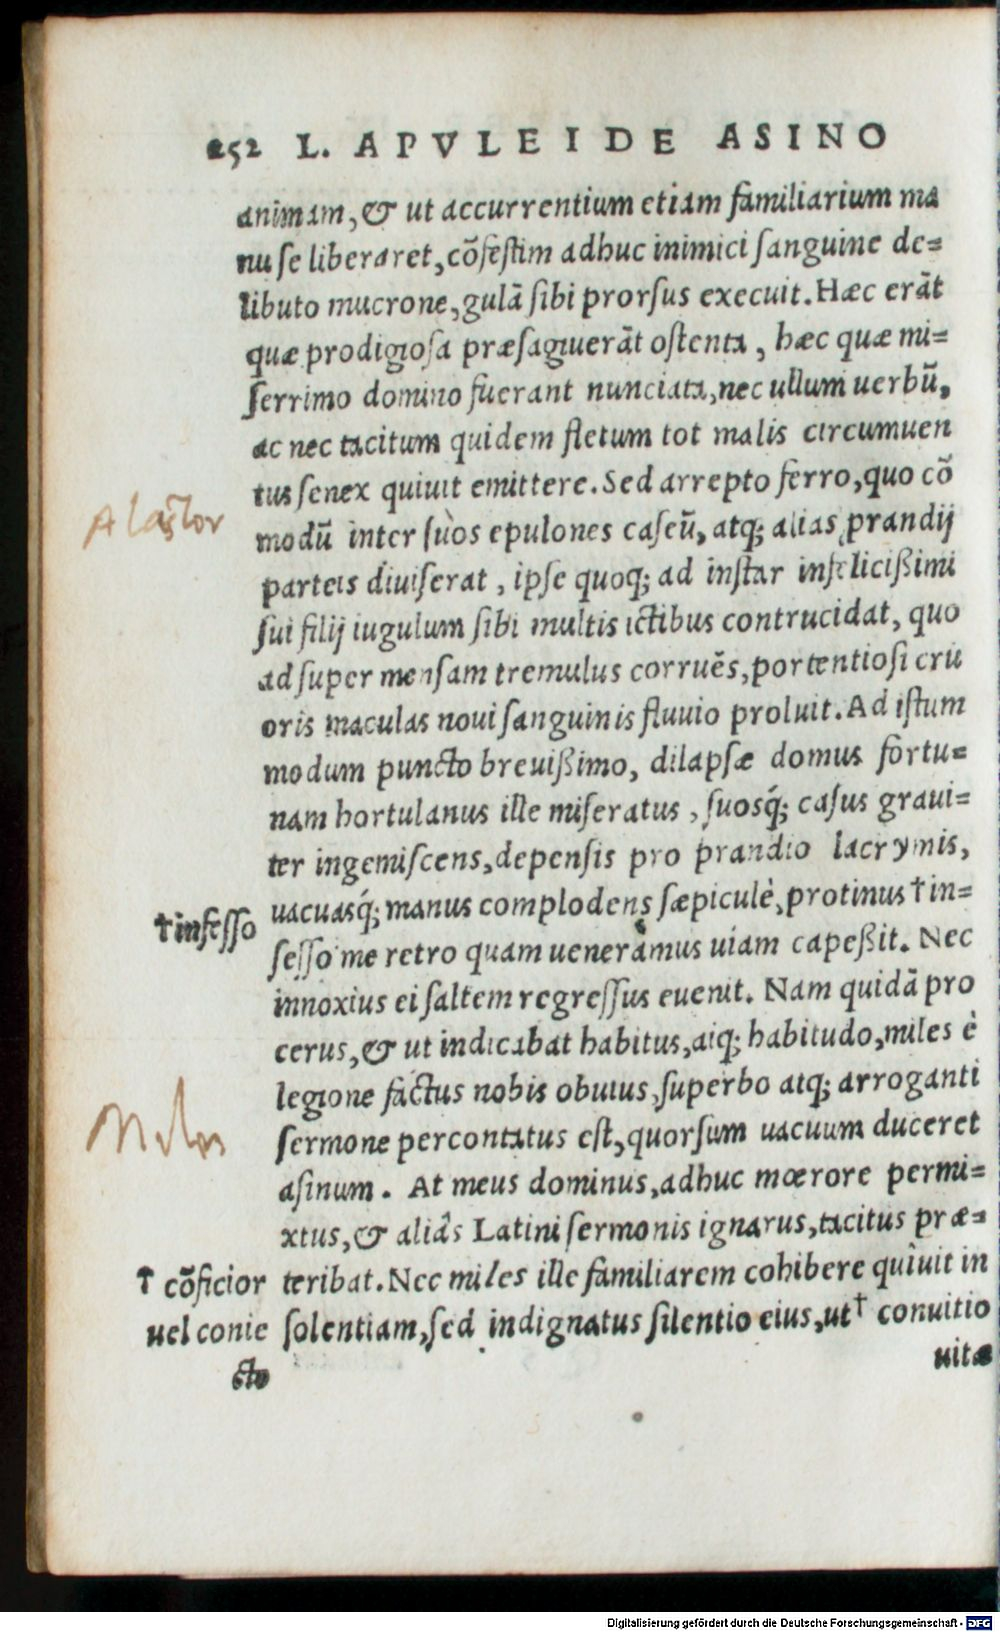 252 L. APVLEI DE ASINO
animam, & ut accurrentium etiam familiarium ma
nu se liberaret, cōfestim adhuc inimici sanguine de=
libuto mucrone, gulā sibi prorsus execuit. Hæc erāt
quæ prodigiosa præsagiuerāt ostenta, hæc quæ mi=
serrimo domino fuerant nunciata, nec ullum uerbū,
ac nec tacitum quidem fletum tot malis circumuen
tus senex quiuit emittere. Sed arrepto ferro, quo cō
Alastor
modū inter suos epulones caseū, atq; alias prandij
parteis diuiserat, ipse quoq; ad instar infelicißimi
sui filij iugulum sibi multis ictibus contrucidat, quo
ad super mensam tremulus corruēs, portentiosi cru
oris maculas noui sanguinis fluuio proluit. Ad istum
modum puncto breuißimo, dilapsæ domus fortu=
nam hortulanus ille miseratus, suosq́; casus graui=
ter ingemiscens, depensis pro prandio lacrymis,
uacuasq́; manus complodens sæpiculè, protinus † in=
† infesso
sesso me retro quam ueneramus uiam capeßit. Nec
innoxius ei saltem regressus euenit. Nam quidā pro
cerus, & ut indicabat habitus, atq; habitudo, miles è
legione factus nobis obuius, superbo atq; arroganti
sermone percontatus est, quorsum uacuum duceret
asinum. At meus dominus, adhuc mœrore permi=
xtus, & aliâs Latini sermonis ignarus, tacitus præ=
† cōficior teribat. Nec miles ille familiarem cohibere quiuit in
uel conie solentiam, sed indignatus silentio eius, ut † conuitio
cto
uitæ